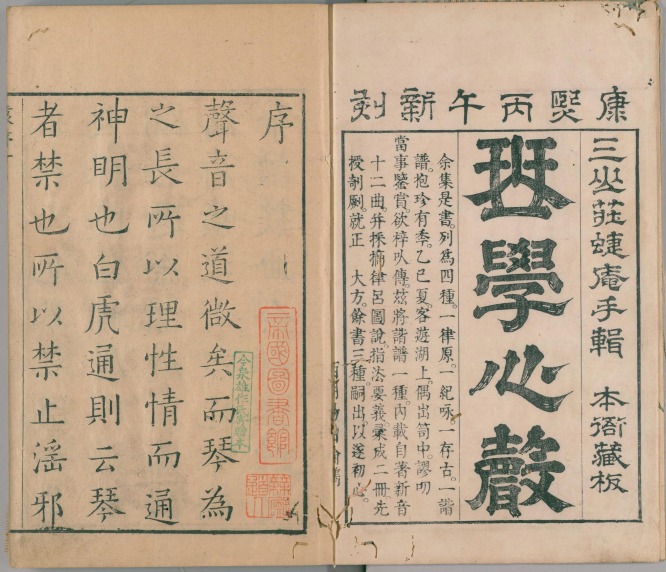 康熙丙午新刻
三山莊蝶庵手輯 本衙藏板
琴學心聲
余集是書。列為四種。一律原。一紀咏。一存古。一諧
譜。抱珍有季。乙巳夏。客遊湖上。偶出笥中。謬叨
當事鑒賞欲梓以傳。茲將諧譜一種。內載自著新音
十二曲。并採擲律呂圖說。指法要義。彙成二冊。先
授剞劂就正 大方。餘書三種。嗣出。以遂初心。
序
聲音之道微矣而琴為
之長所以理性情而通
神明也白虎通則云琴
者禁也所以禁止淫邪
帝國圖書館
今泉雄作氏寄贈本